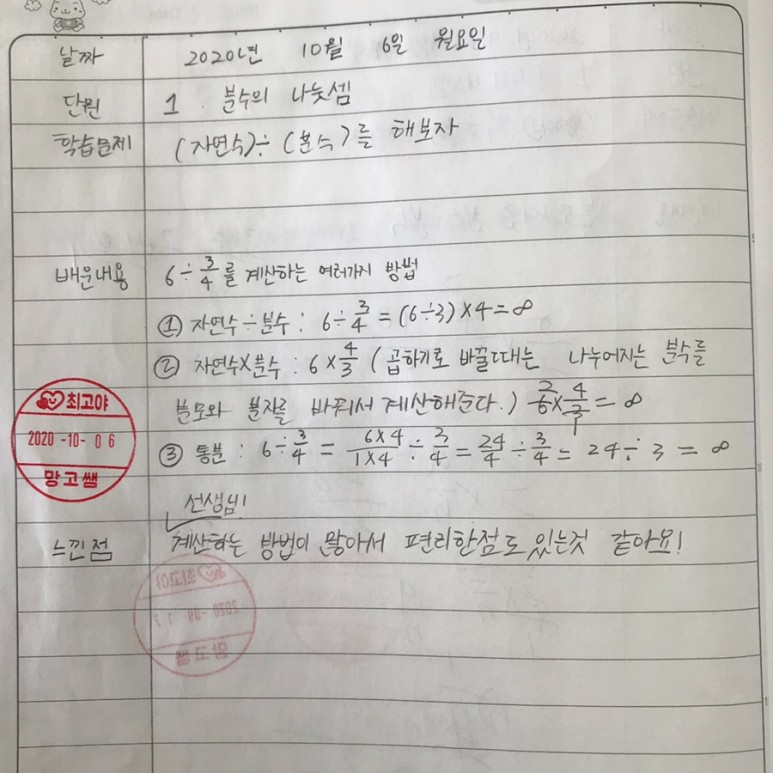 날짜 2020년 10월 6일 월요일
단원 1. 분수의 나눗셈
학습문제 (자연수)÷(분수)를 해보자
배운내용 6÷3/4를 계산하는 여러가지 방법
① 자연수÷분수 : 6÷3/4=(6÷3)×4=8
② 자연수×분수 : 6×4/3 (곱하기로 바꿀때는 나누어지는 분수를
분모와 분자를 바꿔서 계산해준다.) 2/6×4/3/1=8
③ 통분 : 6÷3/4=6×4/1×4÷3/4=24/4÷3/4=24÷3=8
최고야
2020-10-06
망고쌤
선생님!
느낀점 계산하는 방법이 많아서 편리한점도 있는것 같아요!